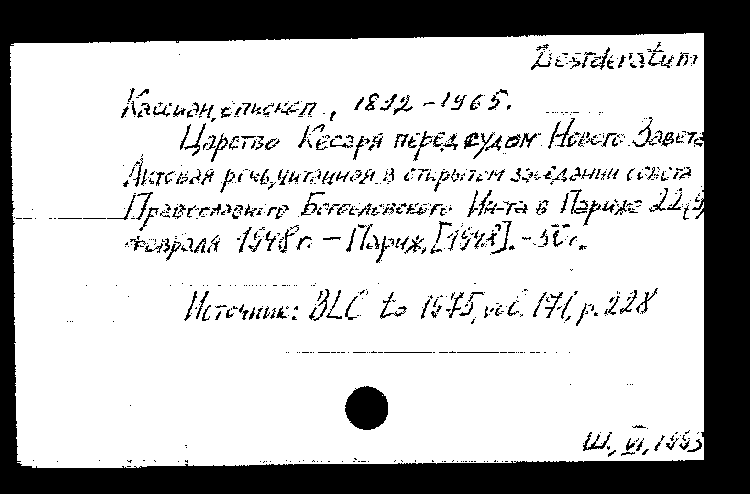 Desideratum
Кассиан, епископ, 1892-1965.
Царство Кесаря перед судом Нового Завета
Актовая речь, читанная в открытом заседании совета
Православного Богословского Ин-та в Париже 22(9)
февраля 1948 г. - Париж, [1948]. - 50 с.
Источник: BLC to 1975, vol. 171, p. 228
Ш., VI, 1993